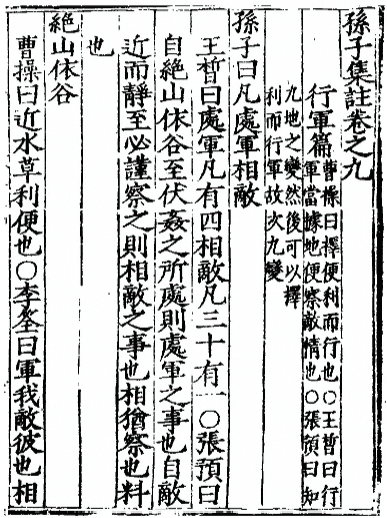 孫子集註卷之九
行軍篇曹操曰擇便利而行也○王晳曰行
軍當據地便察敵情也○張預曰知
九地之變然後可以擇
利而行軍故次九變
孫子曰凡處軍相敵
王晳曰處軍凡有四相敵凡三十有一○張預曰
自絶山依谷至伏姦之所處則處軍之事也自敵
近而靜至必謹察之則相敵之事也相猶察也料
也
絶山依谷
曹操曰近水草利便也○李筌曰軍我敵彼也相